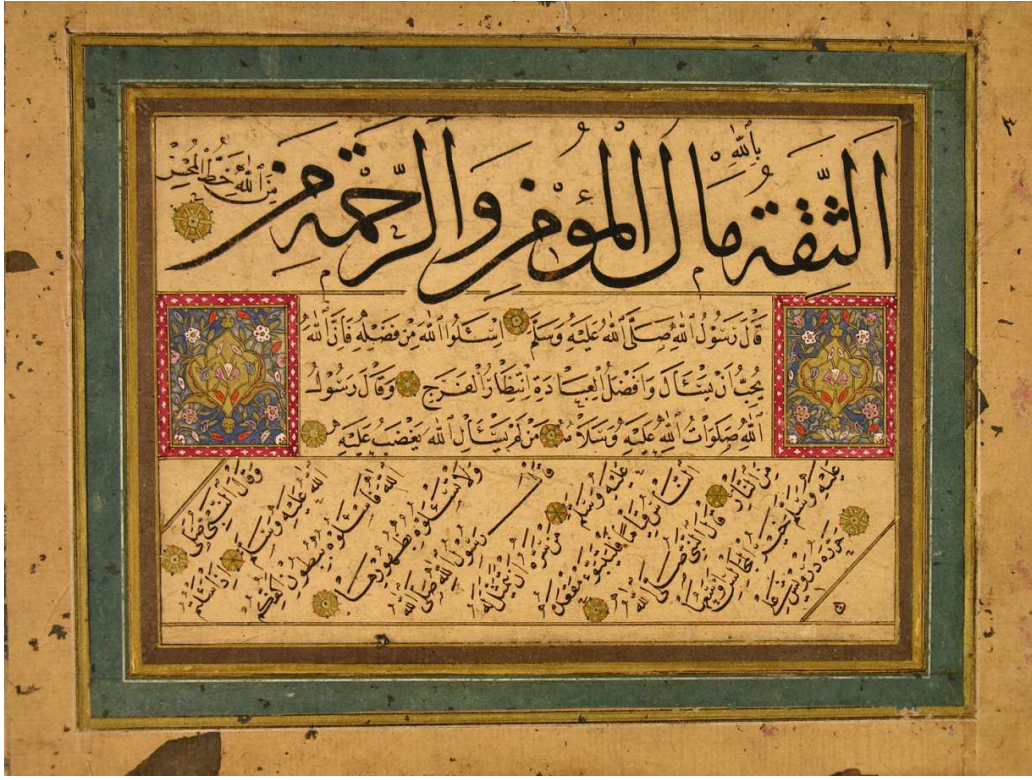 الثقة بالله مال المؤمن والرحمة
من الله حظ المحسن
قَالَ رَسُولُ اللهِ صَلَّى اللهُ عَلَيْهِ وَسَلَّمَ اسْئَلُوا اللهَ مِنْ فَضْلِهِ فَاِنَّ اللهَ
يُحِبُّ اَنْ يُسْأَلَ وَاَفْضَلُ الْعِبَادَةِ اِنْتِظَارُ الْفَرَجِ وَقَالَ رَسُولُ
اللهِ صَلَوَاتُ اللهِ عَلَيْهِ وَسَلَامُهُ مَنْ لَمْ يَسْأَلِ اللهَ يَغْضَبْ عَلَيْهِ
وقال النبى صلى
الله عليه وسلم اذا سئلتم
الله فاسئلوه ببطون اكفكم
ولا تسئلوه بظهورها
قال رسول الله صلى الله
عليه وسلم من سره ان يتمثل له
الناس قياما فليتبوء مقعده
من النار قال النبى صلى الله
عليه وسلم خير المجالس اوسعها
حرره درويش على